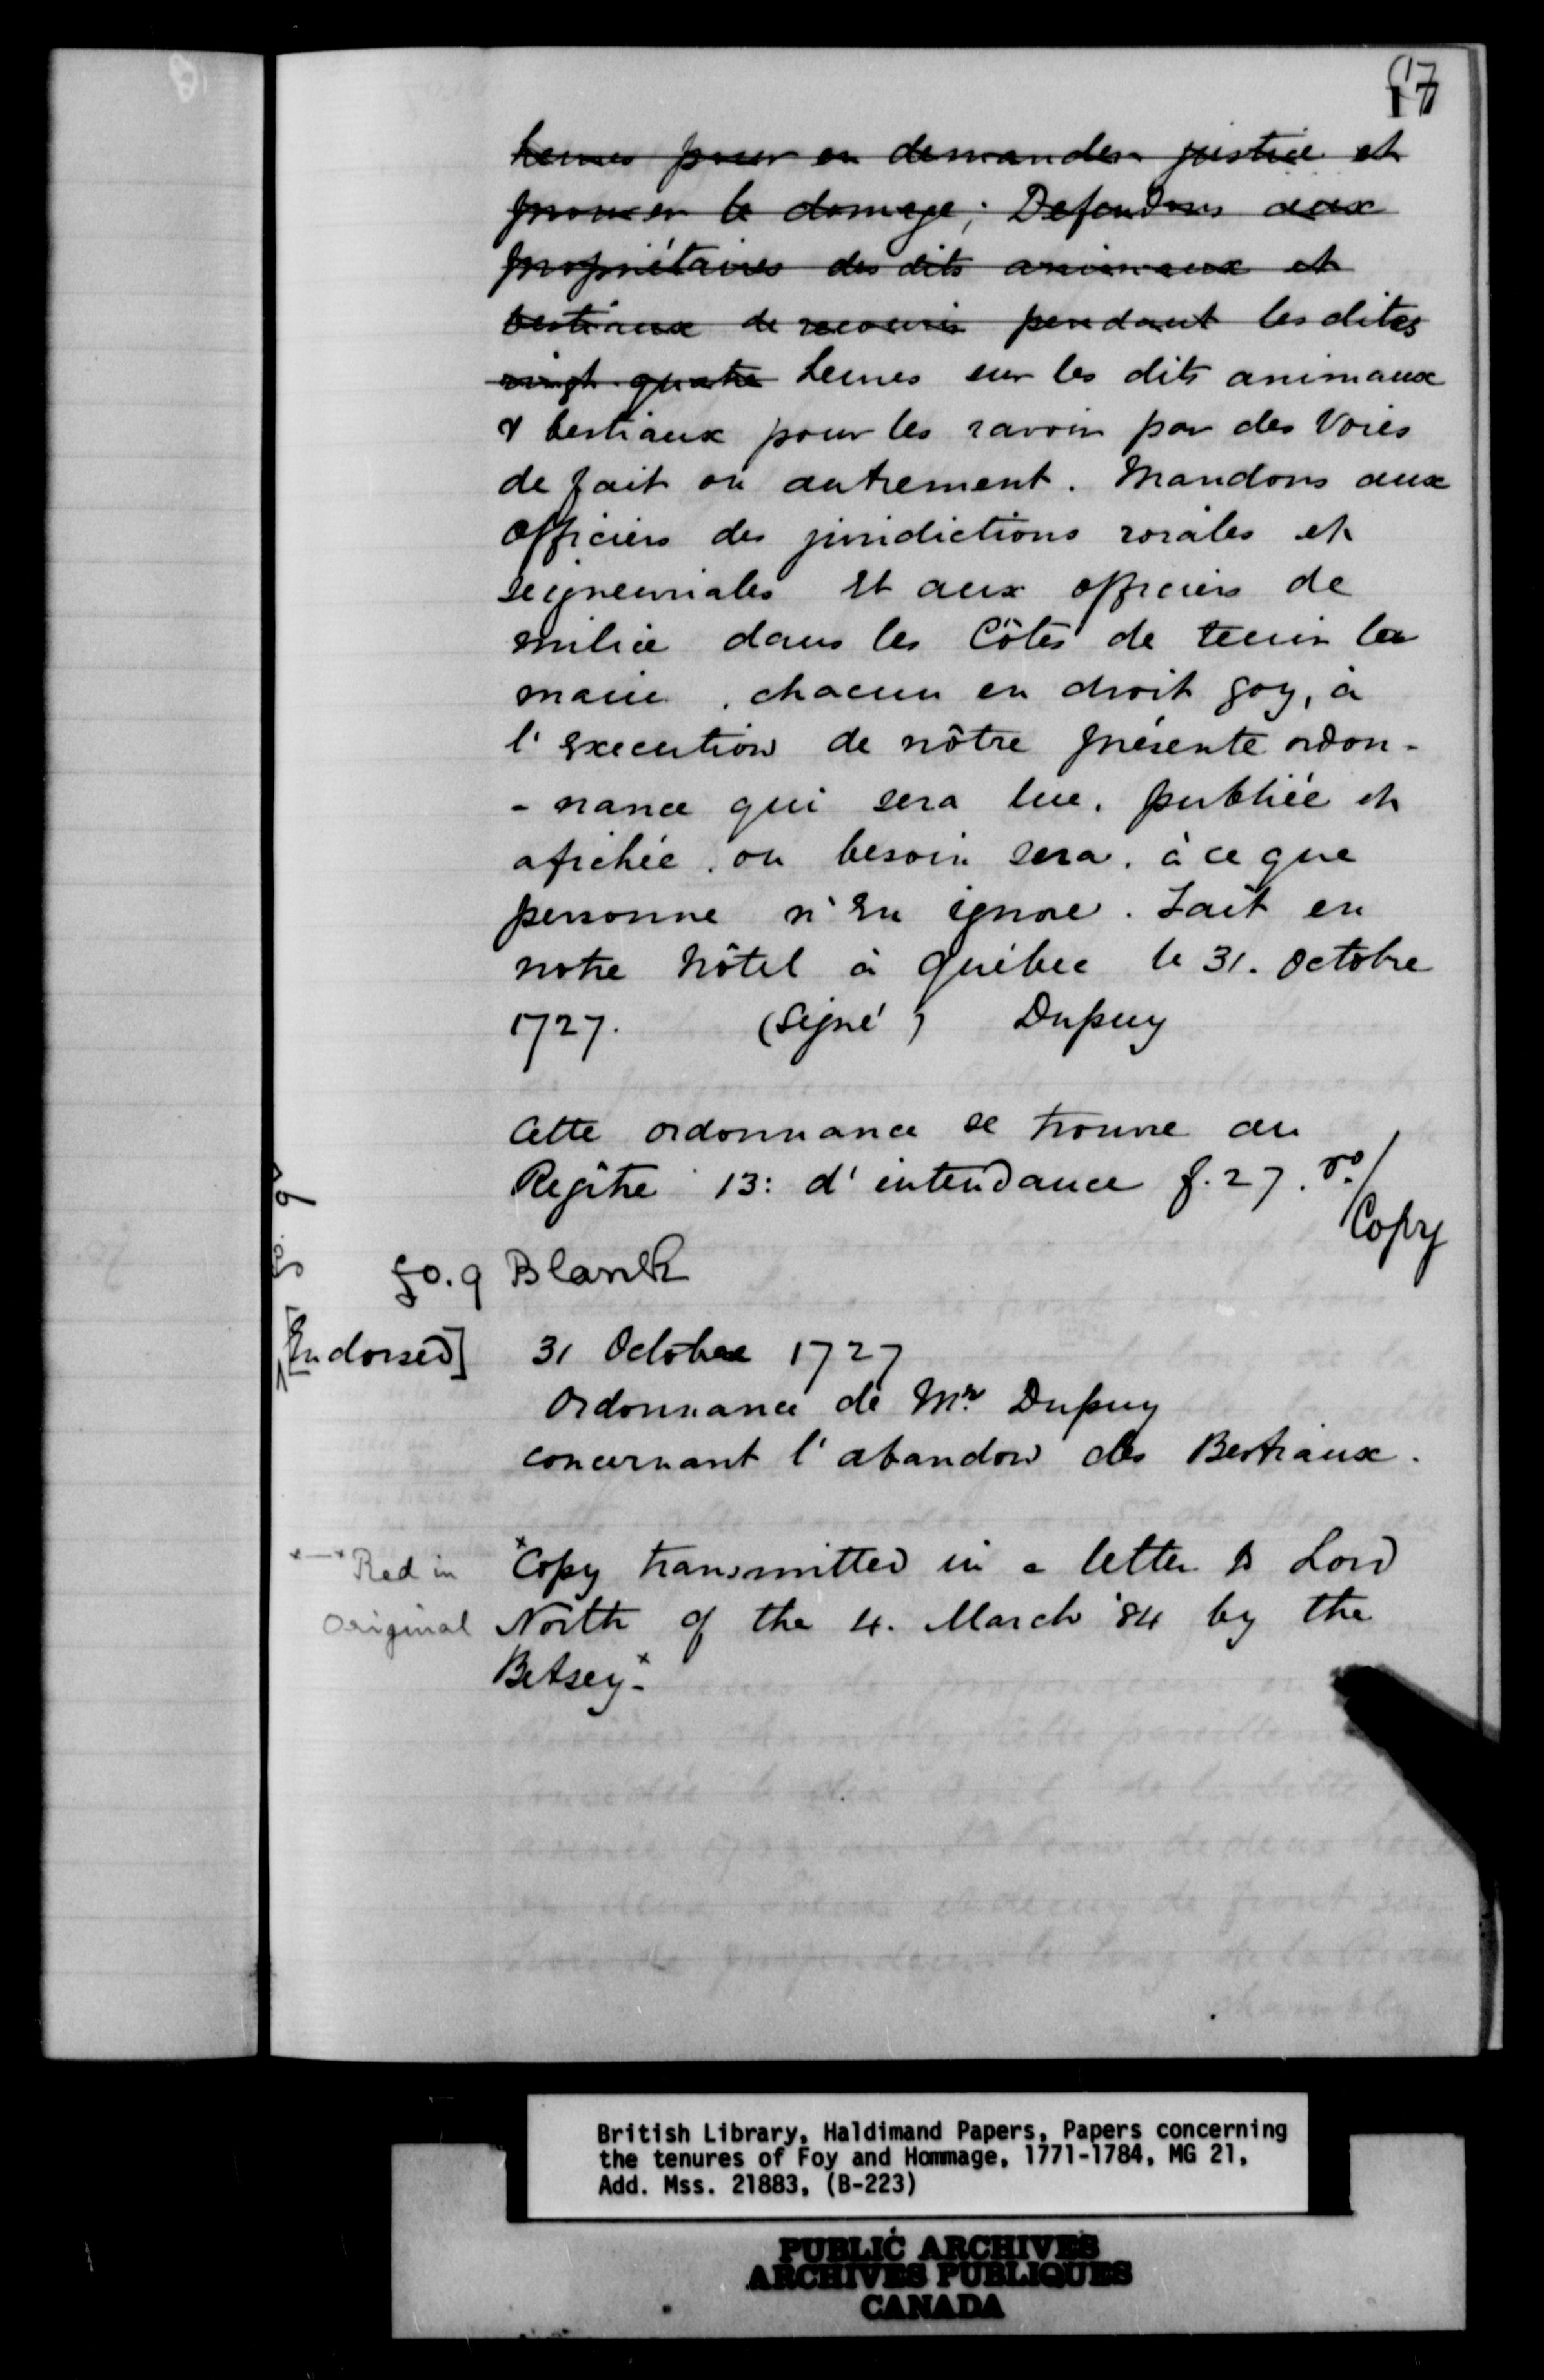 17
heures pour en demander justice et
prouver le domage; Defendons aux
propriétaires des dits animaux et
bestiaux de recourir pendant les dites
vingt quatre heures sur les dits animaux
& bestiaux pour les ravoir par des Voies
de fait ou autrement. Mandons aux
Officiers des juridictions roiales et
Seigneuriales Et aux officiers de
milice dans les Côtes de tenir la
main, chacun en droit soy, à
l'Execution de nôtre présente ordon-
-nance qui sera lue, publiée et
afichée, ou besoin sera, à ce que
personne n'En ignore. Fait en
notre hôtel à Québec le 31. Octobre
1727. (Signé) Dupuy
Cette ordonnance se trouve au
Regître 13: d'intendance f. 27. Vo./
Copy
fo. 9 Blank
[Endorsed] 31 Octobre 1727
Ordonnance de Mr. Dupuy
concernant l'abandon des Bestiaux.
x—x Red in x Copy transmitted in a letter to Lord
Original North of the 4. March '84 by the
Betsey x-
British Library, Haldimand Papers, Papers concerning
the tenures of Foy and Hommage, 1771-1784, MG 21,
Add. Mss. 21883, (B-223)
PUBLIC ARCHIVES
ARCHIVES PUBLIQUES
CANADA